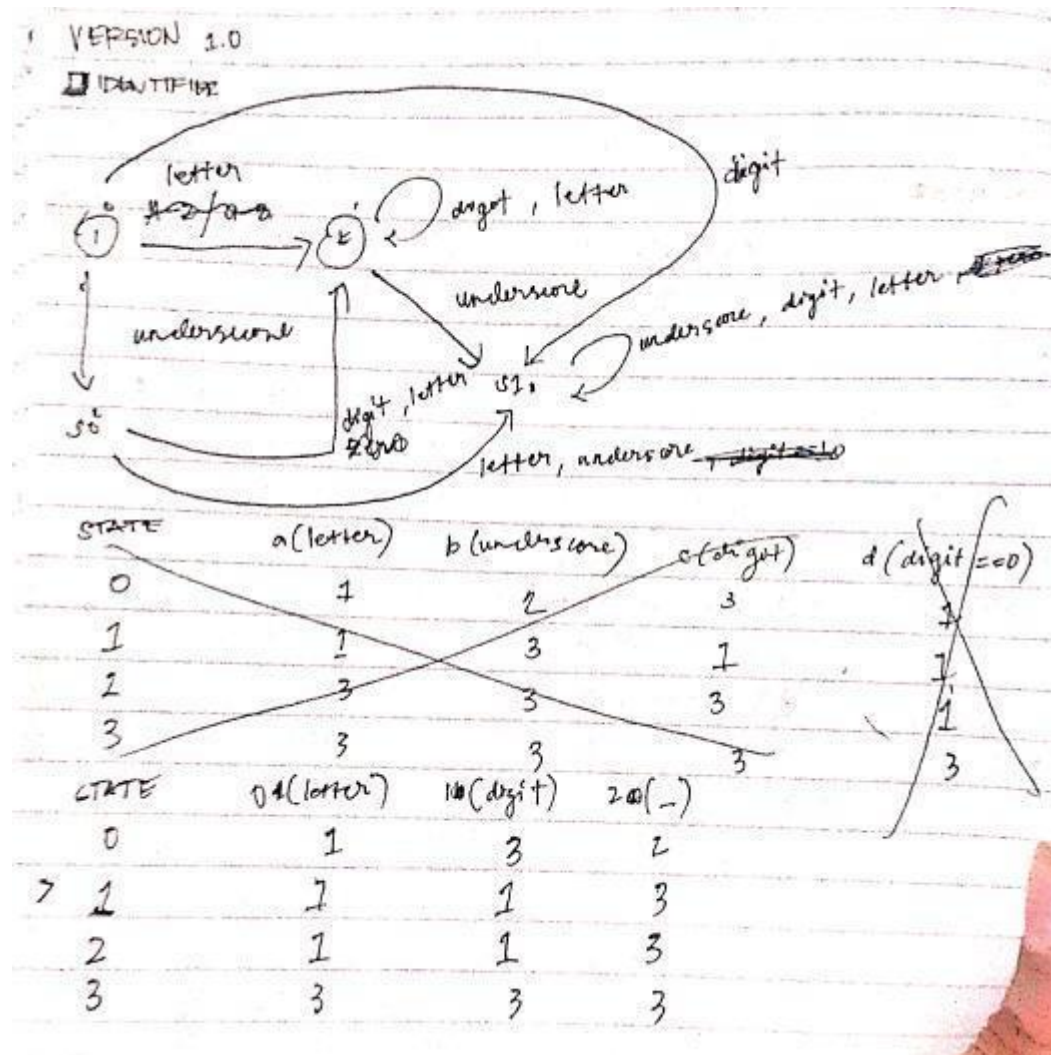 VERSION 1.0
IDENTIFIER
letter
A-Z/a-z
digit
0
1
1
digit, letter
underscore
underscore
underscore, digit, letter,
2
S0
S1.
digit, letter
zero
letter, underscore, digit==0
STATE a(letter) b(underscore) c(digit) d(digit==0)
0 1 2 3 1
1 1 3 1 1
2 3 3 3 1
3 3 3 3 3
STATE 0 (letter) 1 (digit) 2 (_)
0 1 3 2
> 1 1 1 3
2 1 1 3
3 3 3 3